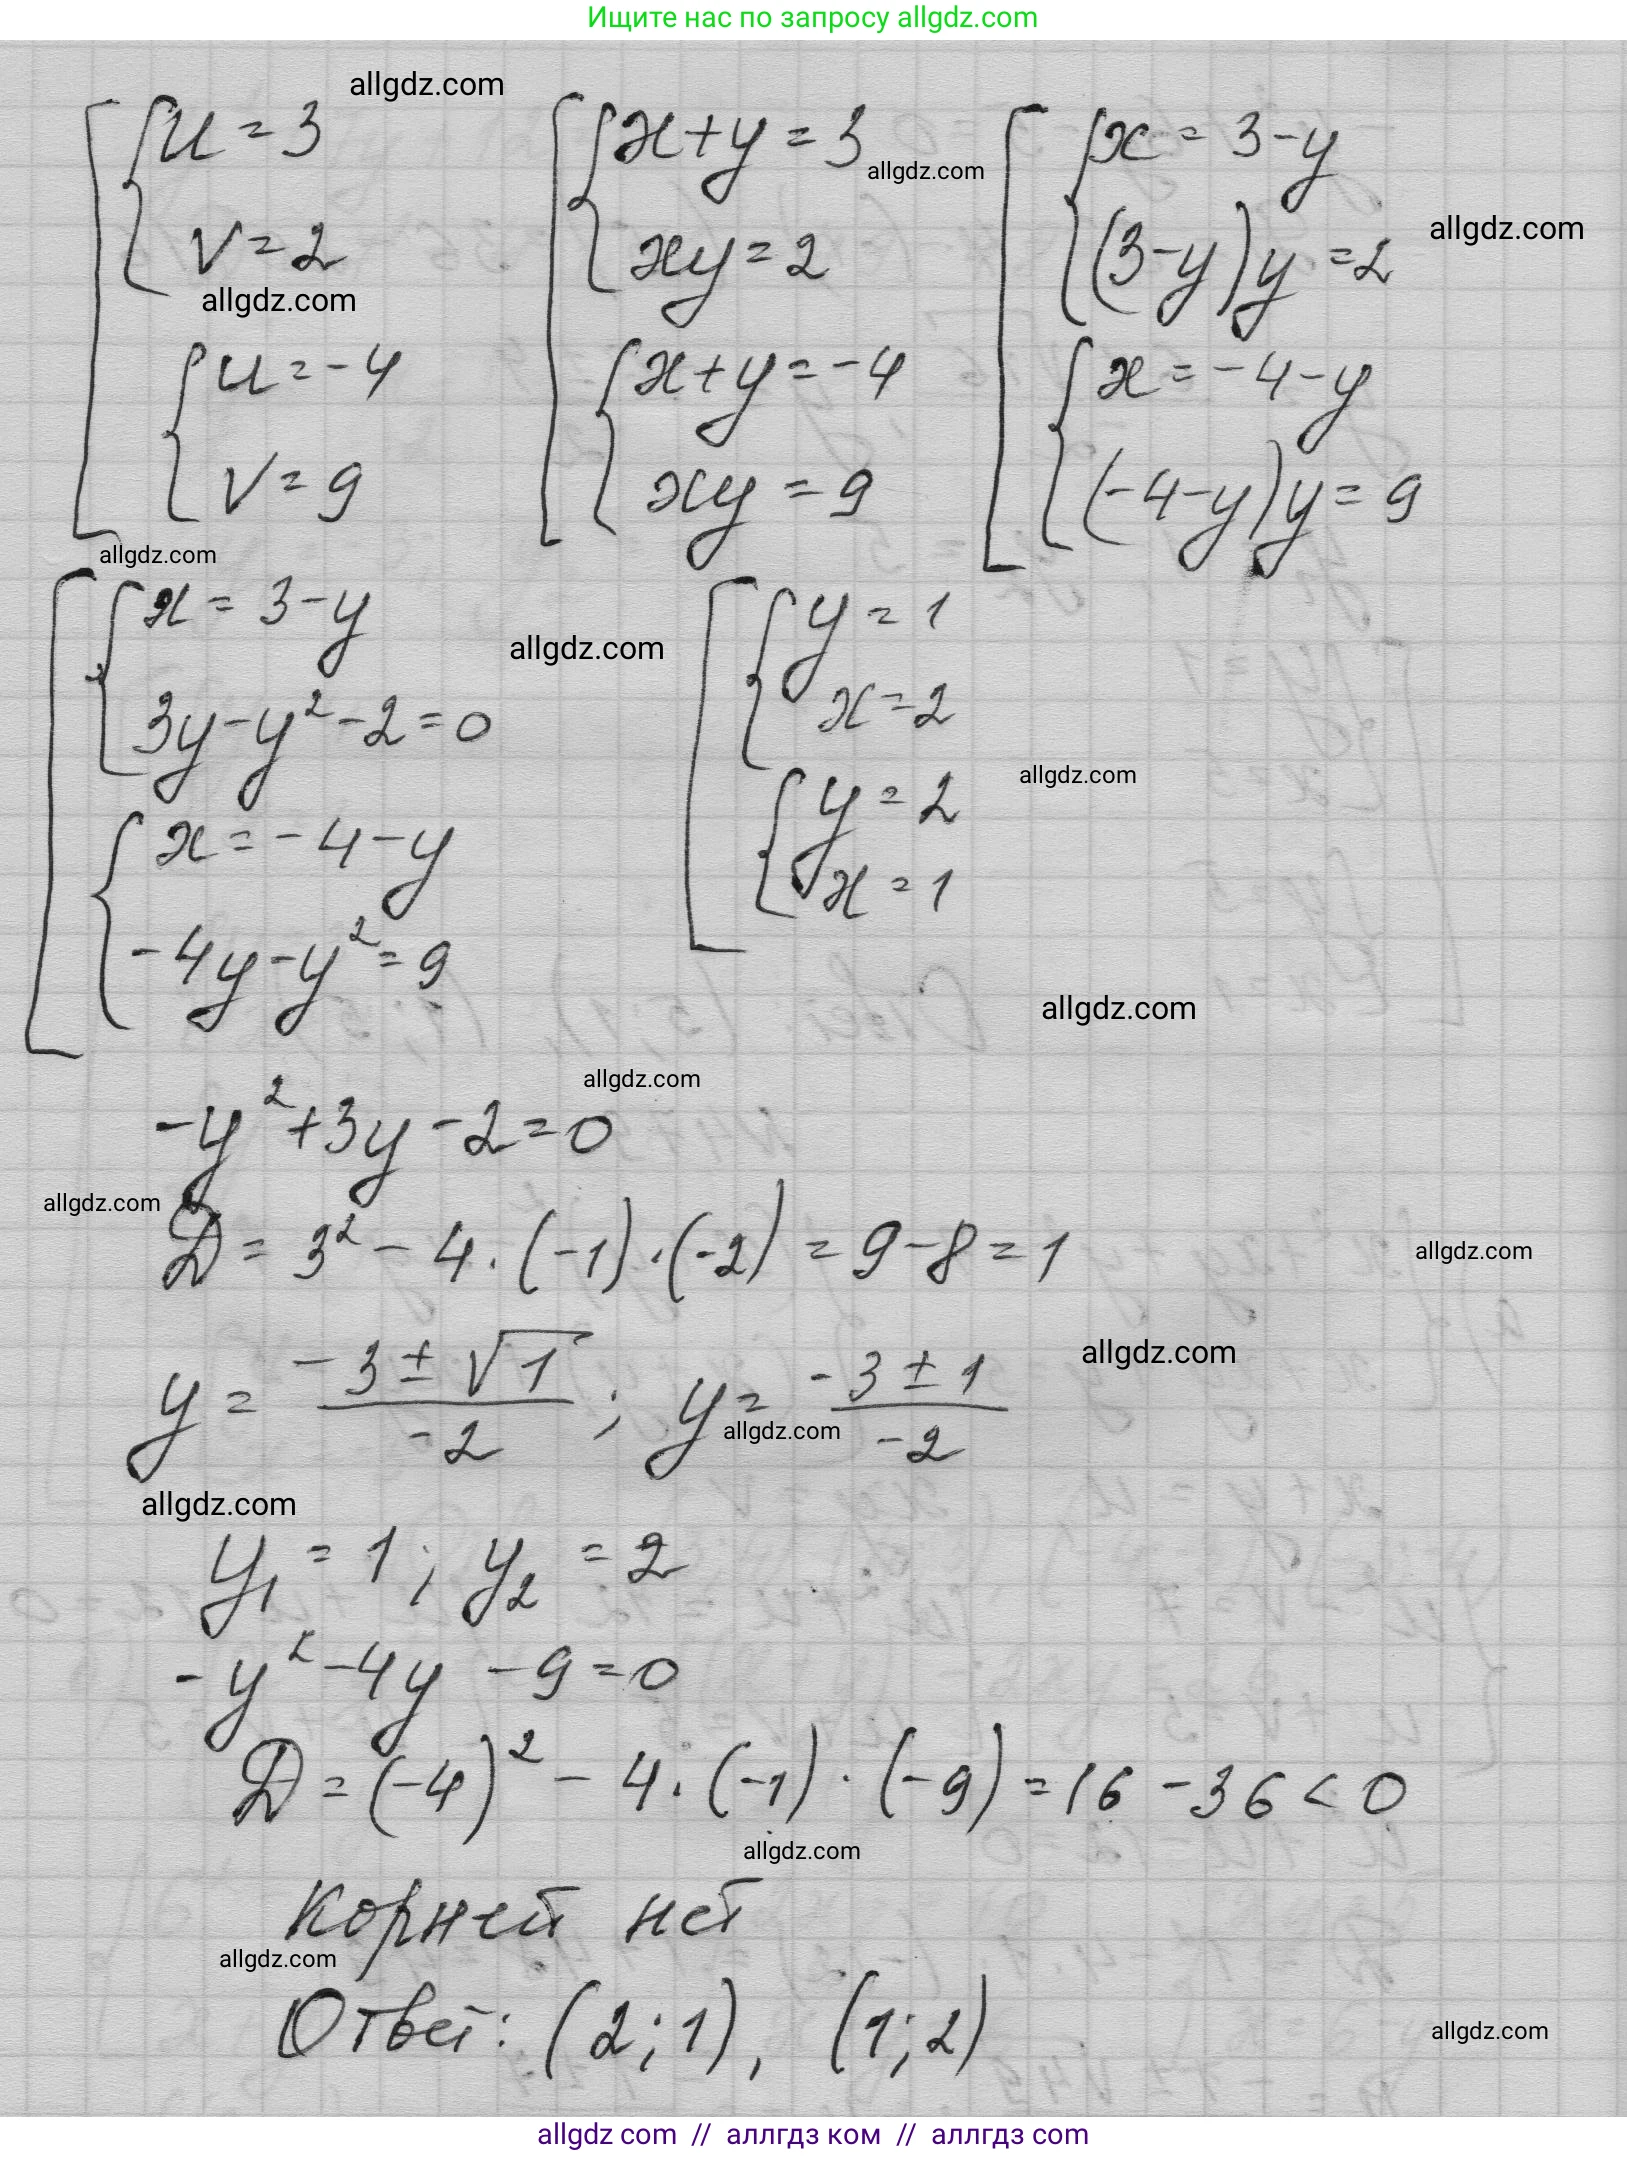 Ищите нас по запросу allgdz.com
allgdz.com
[ { u = 3   [ { x + y = 3   [ { x = 3 - y
allgdz.com
allgdz.com
v = 2   xy = 2   (3 - y)y = 2
allgdz.com
{ u = -4   { x + y = -4   { x = -4 - y
v = 9   xy = 9   (-4 - y)y = 9
allgdz.com
[ { x = 3 - y   [ { y = 1
allgdz.com
3y - y² - 2 = 0   x = 2
allgdz.com
{ x = -4 - y   { y = 2
-4y - y² = 9   x = 1
allgdz.com
allgdz.com
-y² + 3y - 2 = 0
allgdz.com
D = 3² - 4 · (-1) · (-2) = 9 - 8 = 1
allgdz.com
allgdz.com
y = (-3 ± √1)/(-2) ; y = (-3 ± 1)/(-2)
allgdz.com
allgdz.com
y₁ = 1 ; y₂ = 2
-y² - 4y - 9 = 0
D = (-4)² - 4 · (-1) · (-9) = 16 - 36 < 0
allgdz.com
корней нет
allgdz.com
Ответ: (2; 1), (1; 2)
allgdz.com
allgdz com // аллгдз ком // аллгдз com